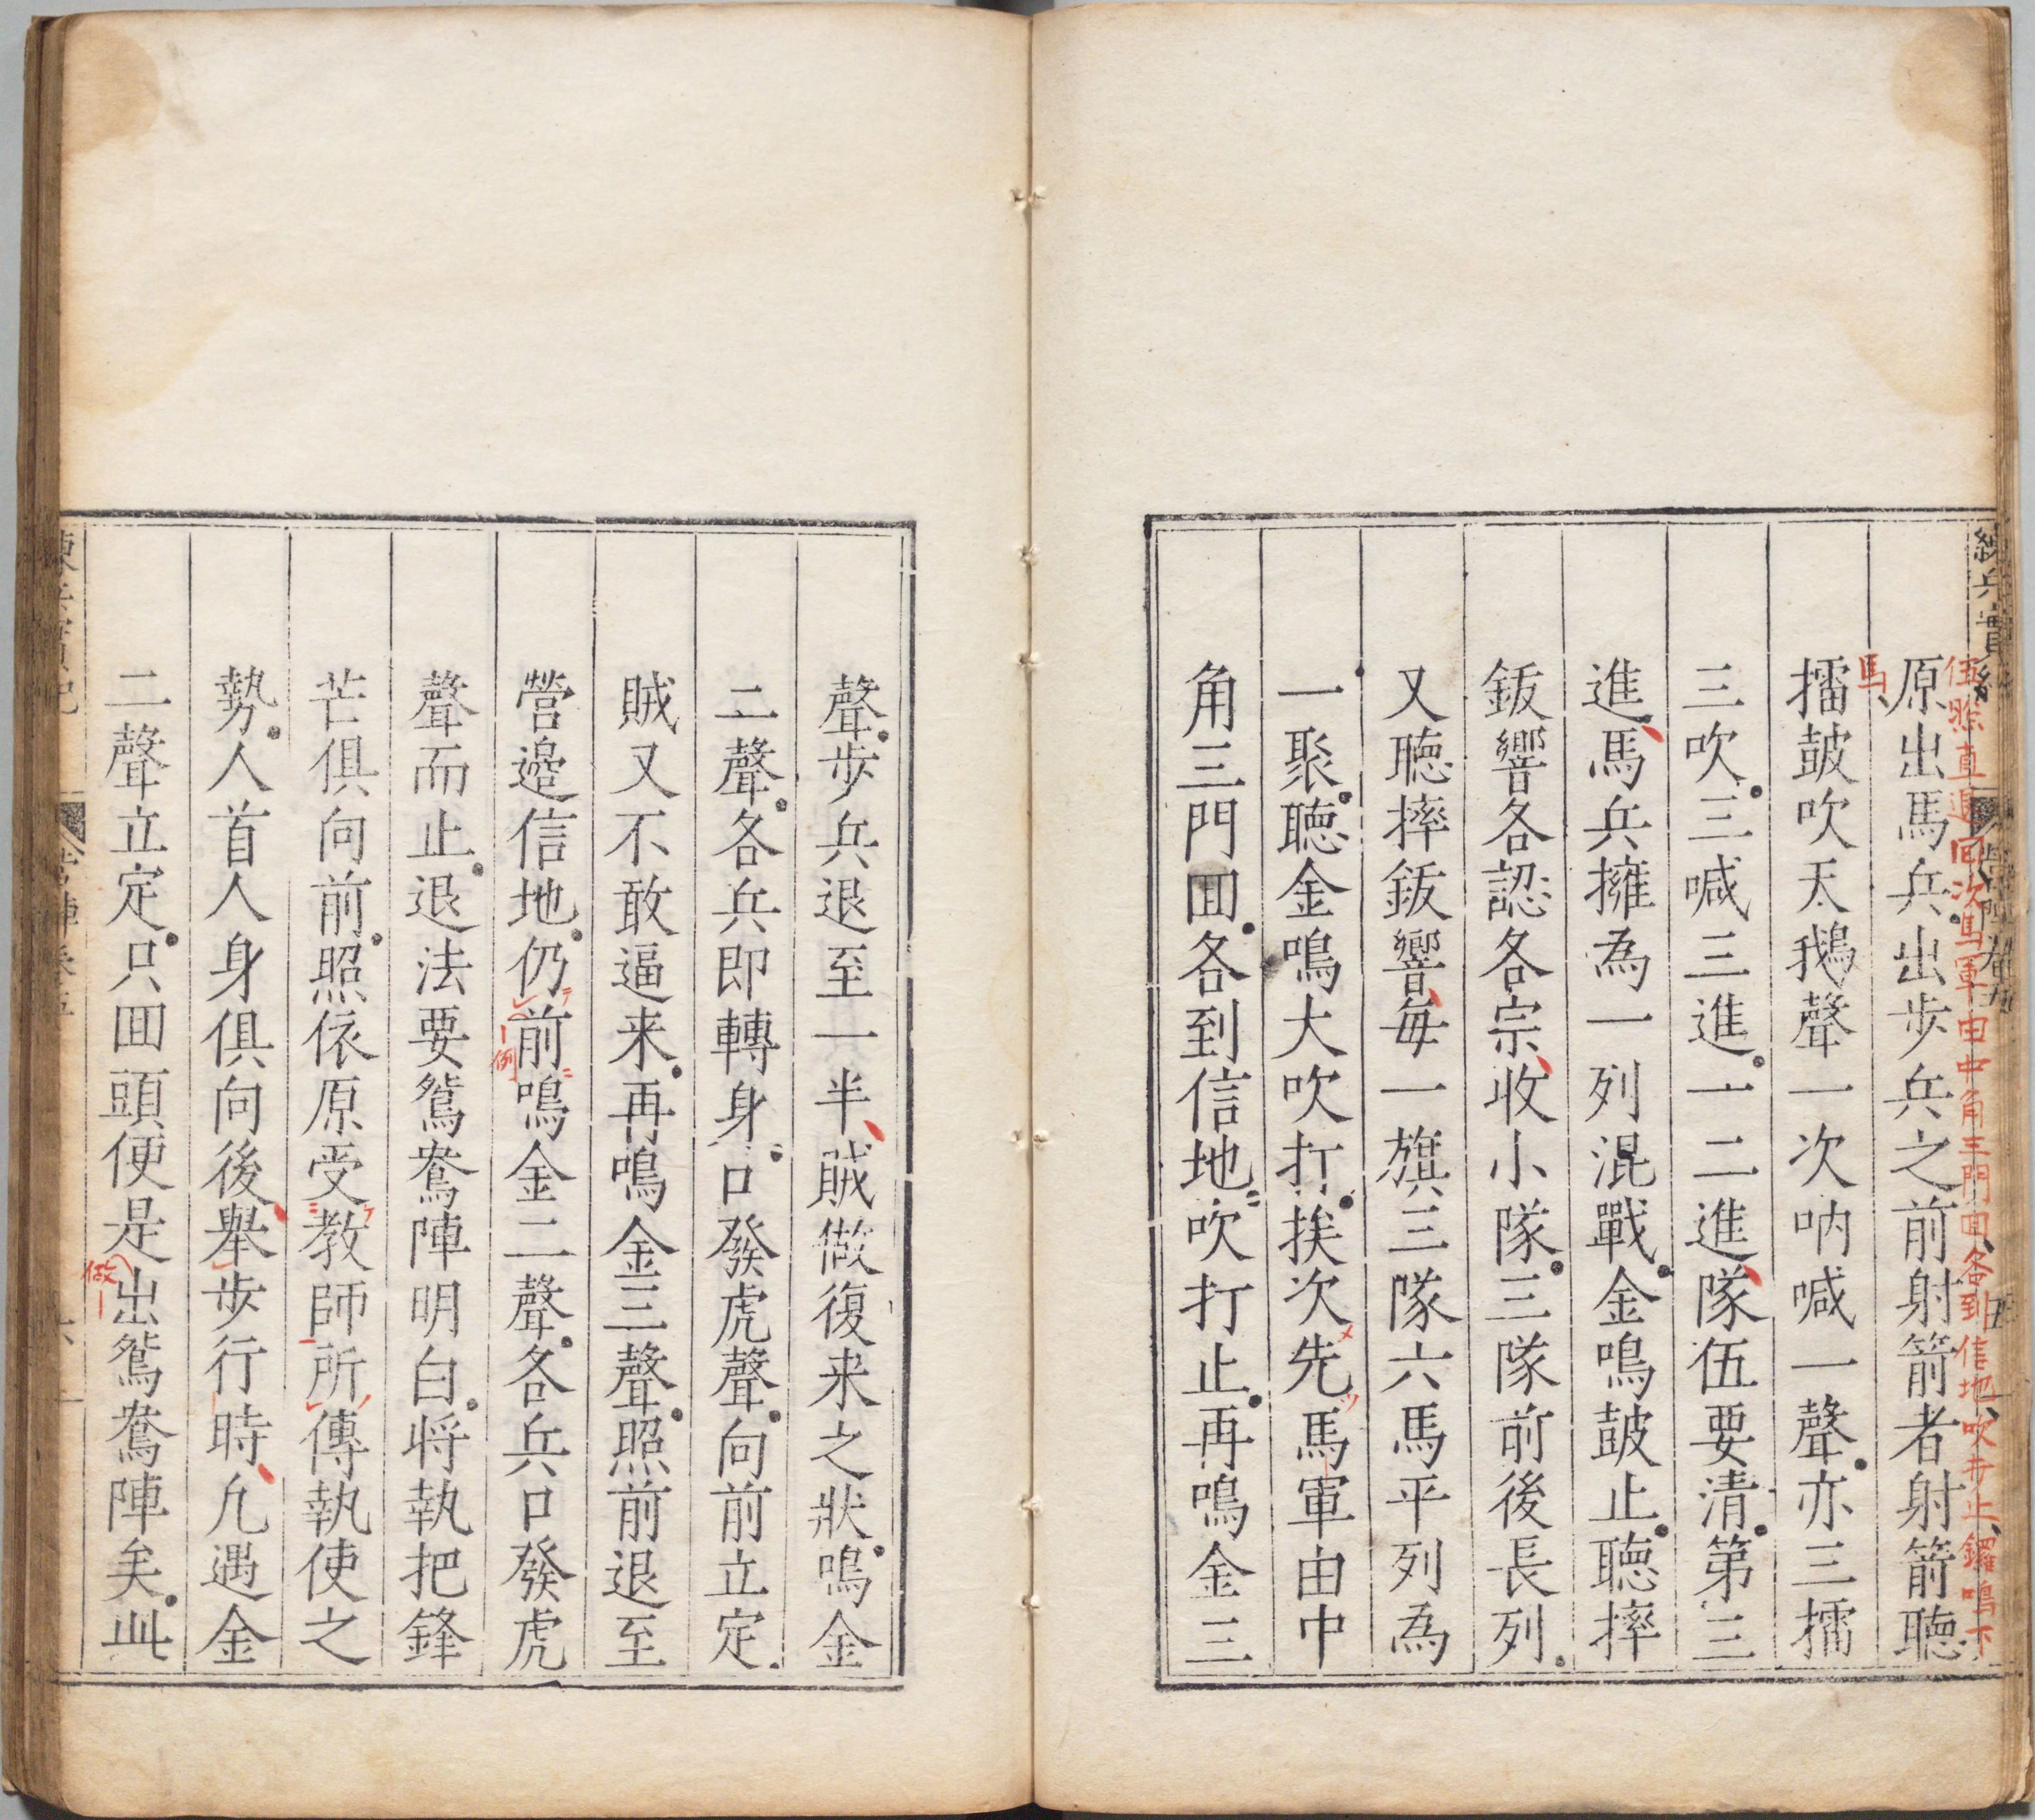 伍照直退回次馬軍由中角三門回各到信地吹打止鑼鳴下
原出馬兵出步兵之前射箭者射箭聽
馬
擂皷吹天鵝聲一次吶喊一聲亦三擂
三吹三喊三進一二進隊伍要清第三
進馬兵擁為一列混戰金鳴皷止聽摔
鈸響各認各宗收小隊三隊前後長列
又聽摔鈸響每一旗三隊六馬平列為
一聚聽金鳴大吹打挨次先馬軍由中
角三門回各到信地吹打止再鳴金三
聲步兵退至一半賊做復来之狀鳴金
二聲各兵即轉身口發虎聲向前立定
賊又不敢逼来再鳴金三聲照前退至
營邊信地仍前鳴金二聲各兵口發虎
例
聲而止退法要鴛鴦陣明白將執把鋒
芒俱向前照依原受教師所傳執使之
勢人首人身俱向後舉步行時凢遇金
二聲立定只囬頭便是出鴛鴦陣矣此
做